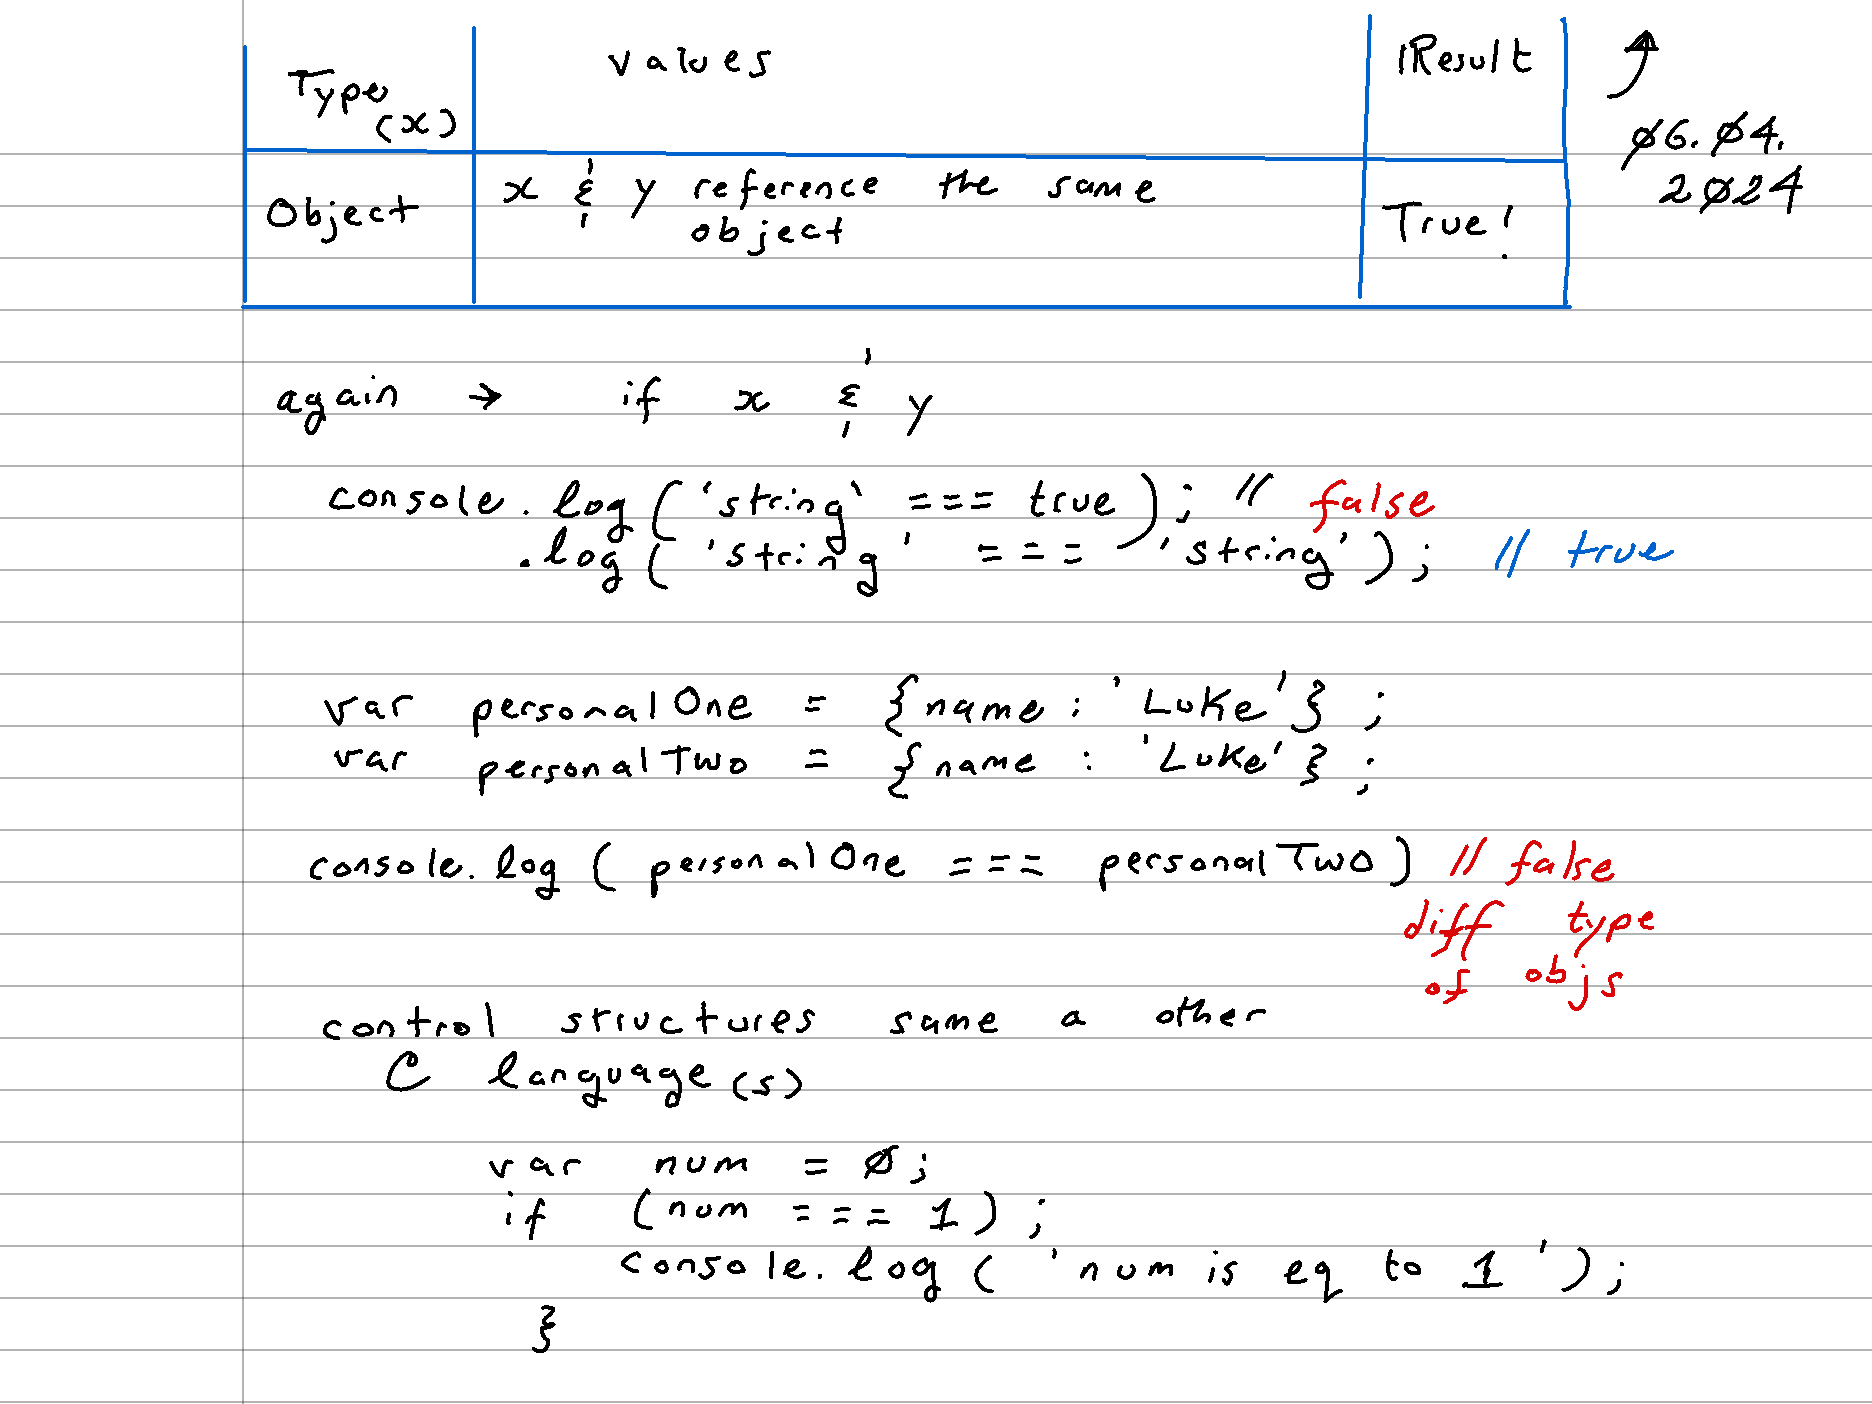 Type (x) values Result
Object x & y reference the same object True!
06.04.
2024
again → if x & y
console.log('string' === true); // false
.log('string' === 'string'); // true
var personalOne = {name : 'Luke'};
var personalTwo = {name : 'Luke'};
console.log(personalOne === personalTwo) // false
diff type
of objs
control structures same a other
C language(s)
var num = 0;
if (num === 1);
console.log('num is eq to 1');
}